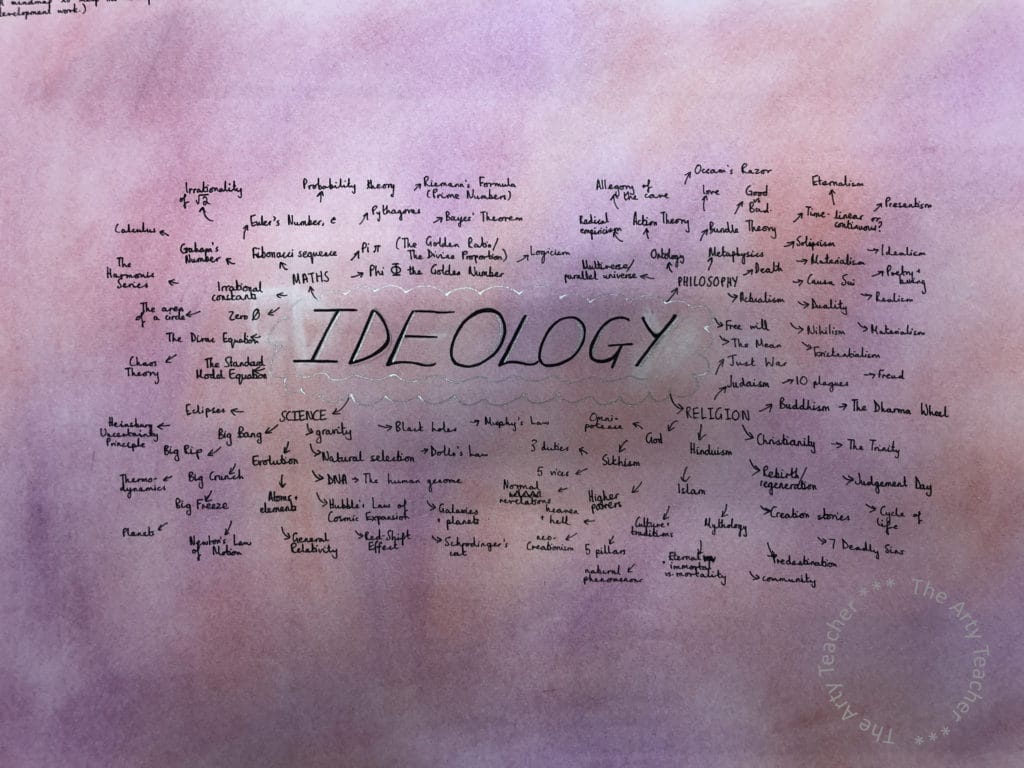 development work.)
IDEOLOGY
MATHS
Irrationality
of √2
Probability theory
Riemann's Formula
(Prime Numbers)
Calculus
Euler's Number, e
Pythagoras
Bayes' Theorem
Graham's
Number
Fibonacci sequence
Pi π
(The Golden Ratio/
The Divine Proportion)
Logicism
Phi Φ the Golden Number
The
Harmonic
Series
Irrational
constants
The area
of a circle
Zero Ø
The Dirac Equation
Chaos
Theory
The Standard
Model Equation
PHILOSOPHY
Allegory of
the cave
Occam's Razor
Love
Good
vs
Bad
Eternalism
Presentism
Radical
empiricism
Action Theory
Bundle Theory
Time- linear or
continuous?
Multiverse/
parallel universe
Ontology
Metaphysics
Solipcism
Idealism
Death
Materialism
Causa Sui
Poetry +
Actualism
Duality
Realism
Free will
Nihilism
Materialism
The Mean
Just War
Freud
SCIENCE
Eclipses
Heinsburg
Uncertainty
Principle
Big Bang
gravity
Black holes
Murphy's Law
Big Rip
Evolution
Natural selection
Dollo's Law
Thermo-
dynamics
Big Crunch
Atoms +
elements
DNA
The human genome
Big Freeze
Hubble's Law of
Cosmic Expansion
Galaxies
+ planets
Planets
Newton's Law
of Motion
General
Relativity
Red-Shift
Effect
Schrodinger's
cat
RELIGION
Judaism
10 plagues
Buddhism
The Dharma Wheel
Omni-
potence
God
Hinduism
Christianity
The Trinity
3 duties
Sikhism
5 vices
Rebirth/
regeneration
Judgement Day
Normal
revelations
Higher
powers
Islam
heaven
+ hell
Culture +
traditions
Mythology
Creation stories
Cycle of
life
neo-
Creationism
5 pillars
Eternal
immortal
vs mortality
Predestination
7 Deadly Sins
natural
phenomenon
community
The Arty Teacher *** The Arty Teacher ***